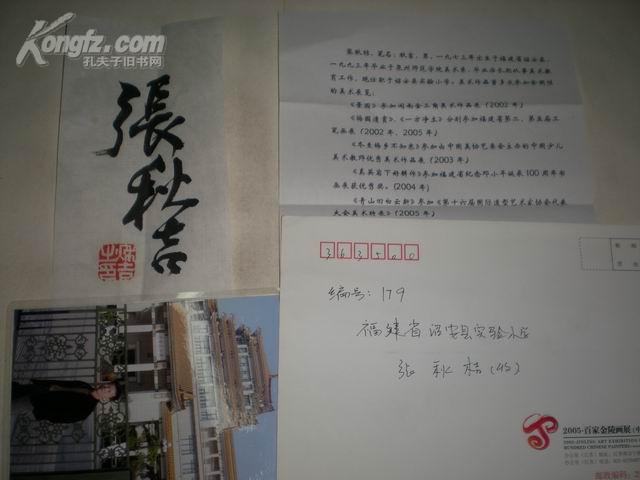 Kongfz.com
孔夫子旧书网
張秋吉
张秋桔，笔名：秋吉，男，一九七三年出生于福建省诏安县，
一九九三年毕业于泉州师范学院美术系，毕业后长期从事美术教
育工作，现任职于诏安县实验小学。美术作品曾多次参加全国性
的美术展览：
《景园》参加闽南金三角美术作品展（2002年）
《杨园清賞》、《一方净土》分别参加福建省第二、第五届工
笔画展（2002年、2005年）
《冬至梅乡不知愁》参加由中国美协艺委会主办的中国少儿
美术教师优秀美术作品展（2003年）
参加福建省纪念邓小平诞辰100周年书
画展获优秀奖。(2004年)
《青山旧白云新》参加《第十六届国际造型艺术家协会代表
大会美术特展》（2005年）
363500
编号：179
福建省诏安县实验小学
张秋桔（收）
2005·百家金陵画展（中
2005·JINLING ART EXHIBITION
HUNDRED CHINESE PAINTERS
邮政编码：2